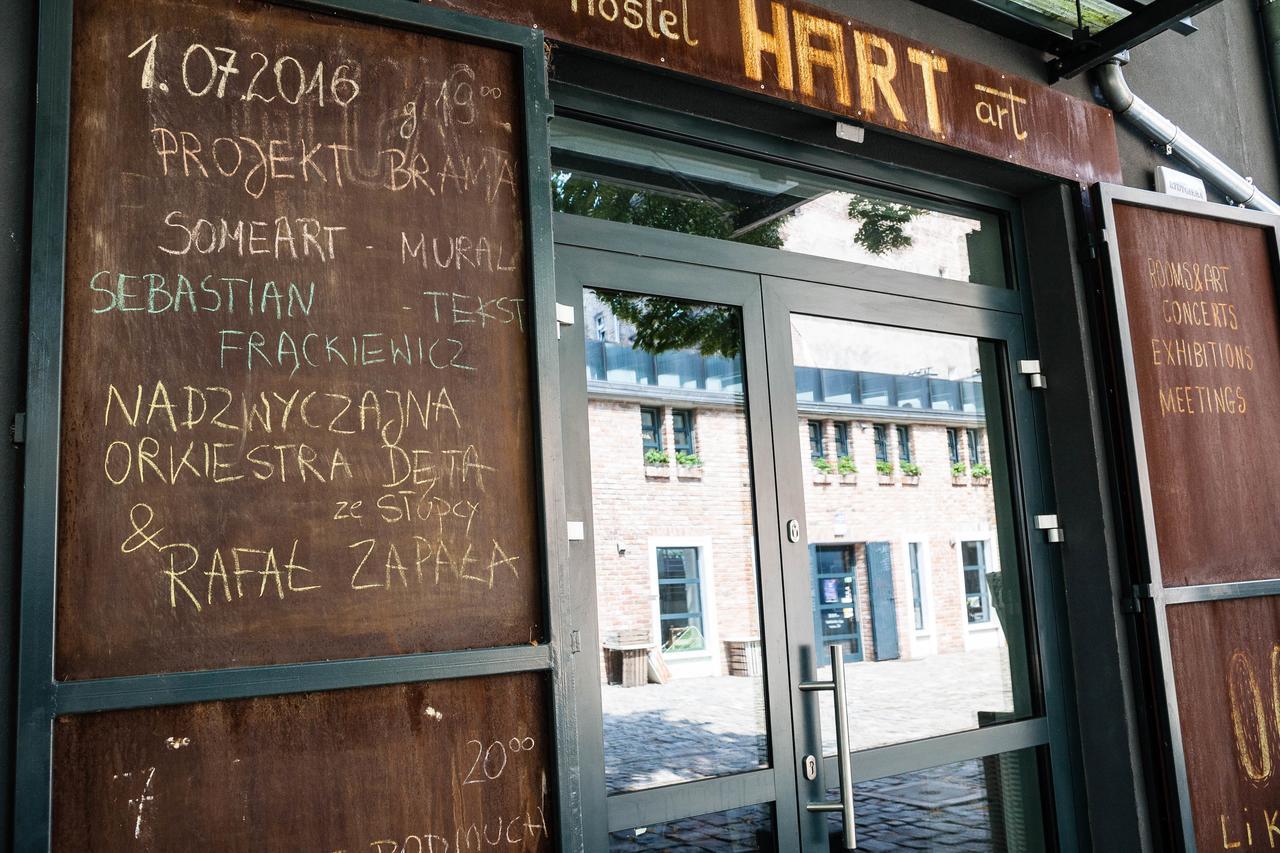 hostel HART art
1.07.2016 g 19⁰⁰
PROJEKT BRAMA
SOMEART - MURAL
SEBASTIAN - TEKST
FRĄCKIEWICZ
NADZWYCZAJNA
ORKIESTRA DĘTA
ze STOPCY
& RAFAŁ ZAPAŁA
20⁰⁰
PODMUCH
ROOMS&ART
CONCERTS
EXHIBITIONS
MEETINGS
LiK